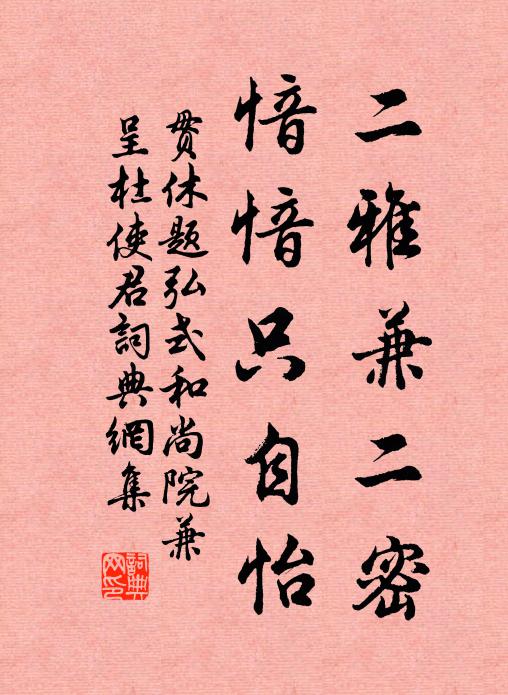 二雅兼二密
愔愔只自怡
贯休题弘式和尚院兼
呈杜使君詞典網集
詞典網印